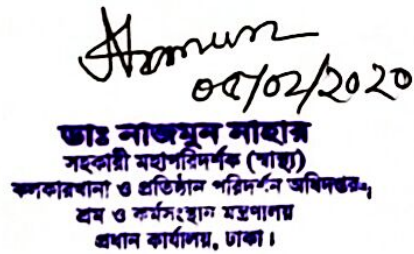 ০৫/০২/২০২০
ডাঃ নাজমুন নাহার
সহকারী মহাপরিদর্শক (স্বাস্থ্য)
কলকারখানা ও প্রতিষ্ঠান পরিদর্শন অধিদপ্তর,
শ্রম ও কর্মসংস্থান মন্ত্রণালয়
প্রধান কার্যালয়, ঢাকা।